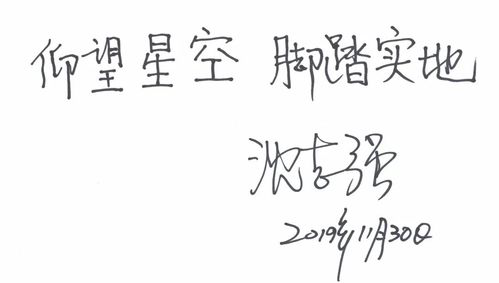 仰望星空 脚踏实地
沈志强
2019年11月30日